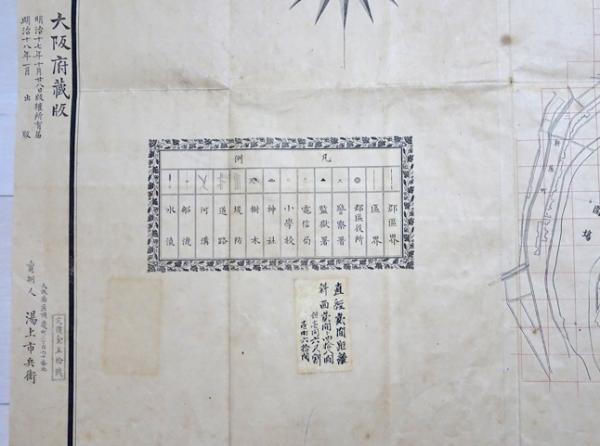 大阪府蔵版
明治十七年十月廿八日版権所有届
明治十八年一月 出版
凡例
郡區界
區界
郡區役所
警察署
監獄署
電信局
小學校
神社
樹木
堤防
道路
河溝
船流
水流
直経貮間距離
斜面貮間
賣捌人 湯上市兵衛
定價金五拾銭